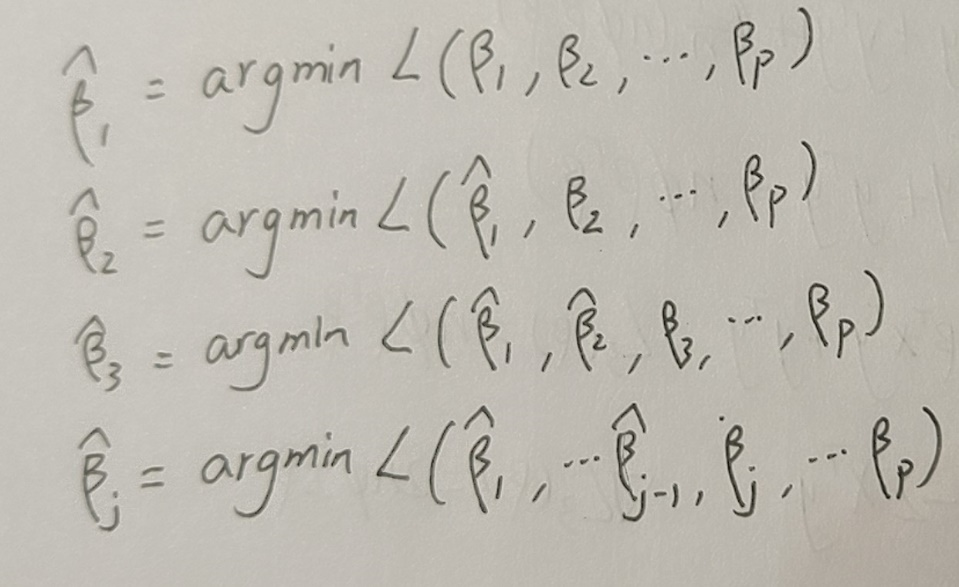 β̂₁ = argmin L(β₁, β₂, ⋯, βₚ)
β̂₂ = argmin L(β̂₁, β₂, ⋯, βₚ)
β̂₃ = argmin L(β̂₁, β̂₂, β₃, ⋯, βₚ)
β̂ⱼ = argmin L(β̂₁, ⋯ β̂ⱼ₋₁, βⱼ, ⋯ βₚ)